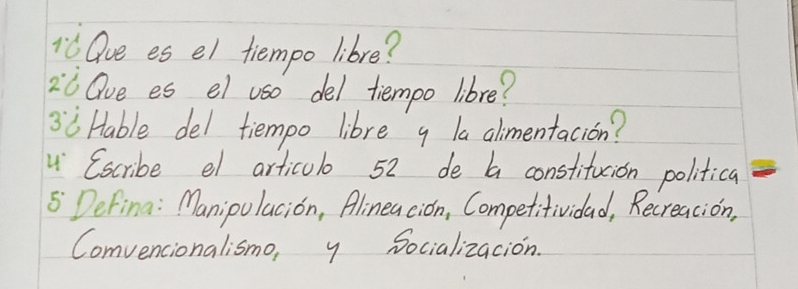 1·¿Que es el tiempo libre?
2·¿Que es el uso del tiempo libre?
3·¿Hable del tiempo libre y la alimentación?
4· Escribe el articulo 52 de la constitución politica
5· Defina: Manipulación, Alineación, Competitividad, Recreación,
Comvencionalismo, y Socialización.